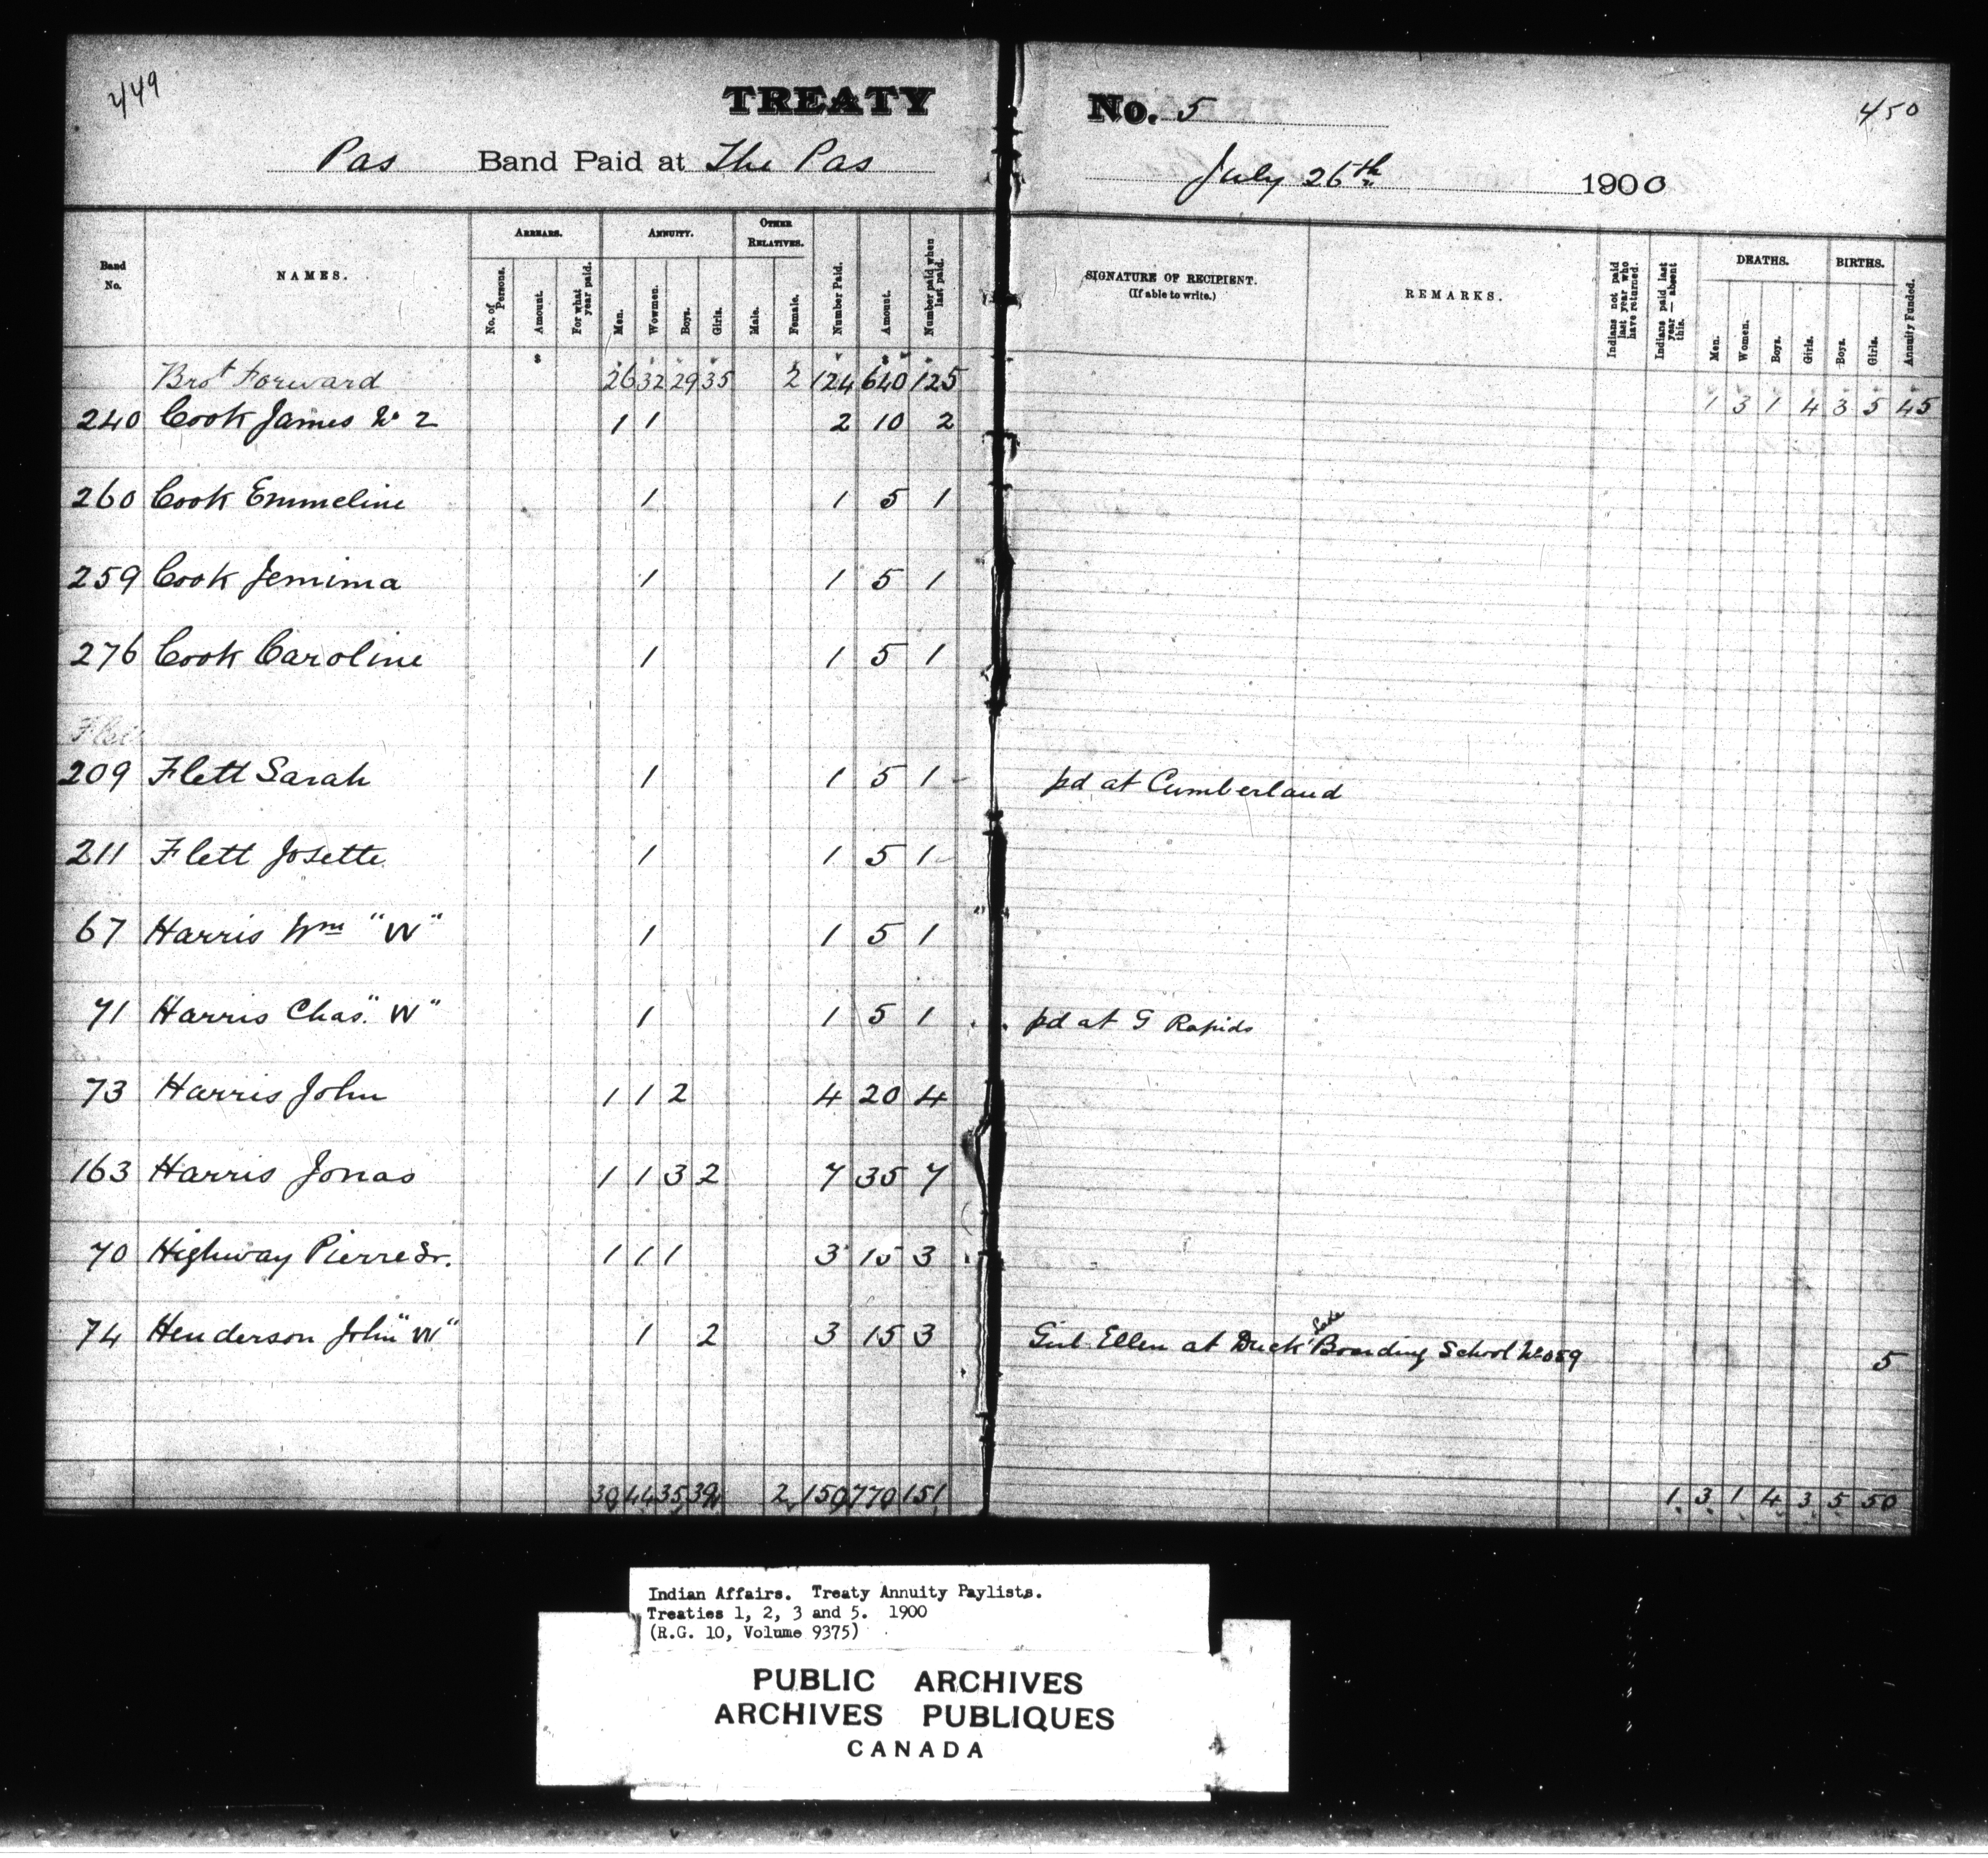 449
TREATY No. 5
450
Pas Band Paid at The Pas July 26th 1900
Band No.
NAMES.
ARREARS.
No. of Persons.
Amount.
For what year paid.
ANNUITY.
Men.
Wowmen.
Boys.
Girls.
OTHER RELATIVES.
Male.
Female.
Number Paid.
Amount.
Number paid when last paid.
SIGNATURE OF RECIPIENT.
(If able to write.)
REMARKS.
Indians not paid last year who have returned.
Indians paid last year — absent this.
DEATHS.
Men.
Women.
Boys.
Girls.
BIRTHS.
Boys.
Girls.
Annuity Funded.
$ $
Brot Forward 26 32 29 35 2 124 640 125 1 3 1 4 3 5 45
240 Cook James No 2 1 1 2 10 2
260 Cook Emmeline 1 1 5 1
259 Cook Jemima 1 1 5 1
276 Cook Caroline 1 1 5 1
209 Flett Sarah 1 1 5 1 pd at Cumberland
211 Flett Josette 1 1 5 1
67 Harris Wm "W" 1 1 5 1
71 Harris Chas. "W" 1 1 5 1 pd at G Rapids
73 Harris John 1 1 2 4 20 4
163 Harris Jonas 1 1 3 2 7 35 7
70 Highway Pierre Sr. 1 1 1 3 15 3
74 Henderson John "W" 1 2 3 15 3 Girl Ellen at Duck Lake Boarding School No 059 5
30 44 35 39 2 150 770 151 1 3 1 4 3 5 50
Indian Affairs. Treaty Annuity Paylists.
Treaties 1, 2, 3 and 5. 1900
(R.G. 10, Volume 9375)
PUBLIC ARCHIVES
ARCHIVES PUBLIQUES
CANADA